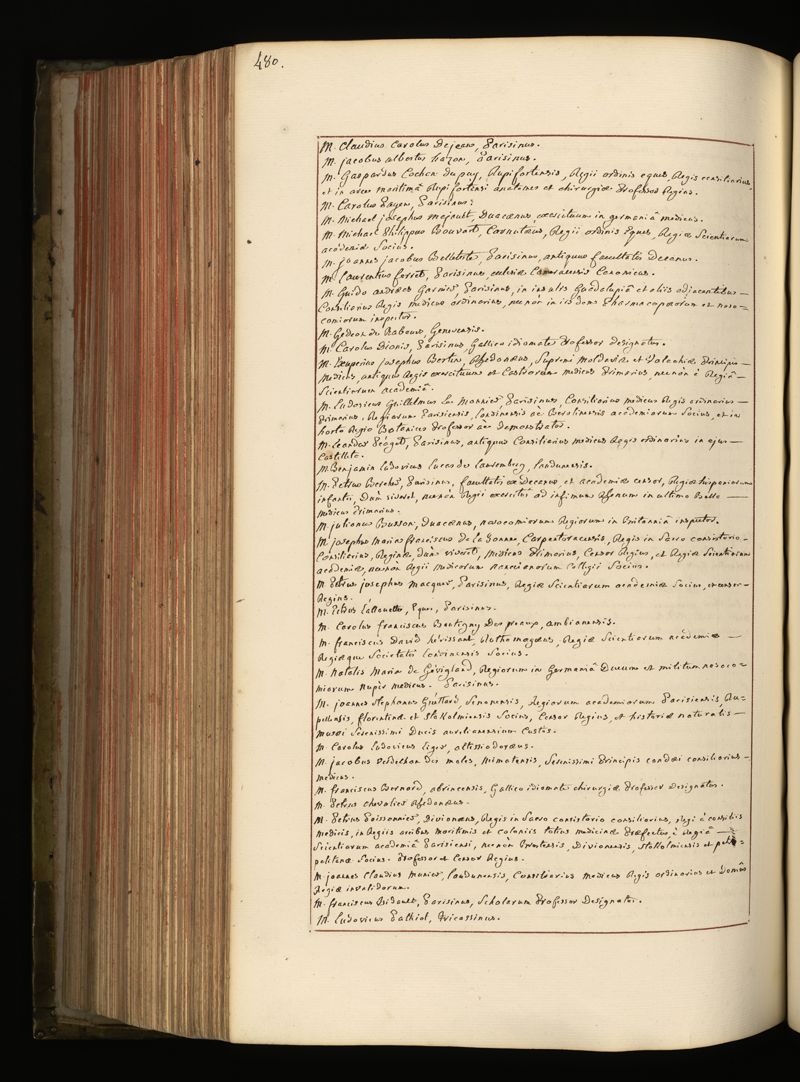 480.
M. Claudius Carolus Dejean, Parisinus.
M. Jacobus albertus hazon, Parisinus.
M. Gaspardus Cochon dupuy, Rupifortensis, Regii ordinis eques, Regis consiliarius,
et in arce maritimâ Rupifortensi anatomes et chirurgiæ Professor Regius.
M. Carolus Payen, Parisinus.
M. Michael josephus majault, Duacænus, exercituum in germaniâ medicus.
M. Michael Philippus Bouvart, Carnutæus, Regii ordinis Eques, Regiæ Scientiarum
academiæ Socius.
M. Joannes jacobus Belleteste, Parisinus, antiquus facultatis Decanus.
M. Laurentius ferret, Parisinus, ecclesiæ Canonicus.
M. Guido andræas Garnier Parisinus, in insulis Guadalupiâ et aliis adjacentibus
Consiliarius Regis medicus ordinarius, necnon in iisdem Pharmacopæorum et noso=
comiorum inspector.
M. Gedeon de Rabours, Genevensis.
M. Carolus Dionis, Parisinus, Gallico idiomate Professor designatus.
M. Exuperius josephus Bertin, Rhedonæus, Supremi Moldaviæ et Valachiæ Principis
medicus, antiquus Regis exercituum et Castrorum medicus Primarius, necnon è Regiâ
Scientiarum academiâ.
M. Ludovicus Guillelmus Le Monnier Parisinus, Consiliarius medicus Regis ordinarius
Primarius, Regiarum Parisiensis, Londinensis ac Berolinensis academiarum Socius, et in
horto Regio Botanices Professor ac Demonstrator.
M. Leander Péaget, Parisinus, antiquus Consiliarius medicus Regis ordinarius in ejus
Castelleto.
M. Benjamin Ludovicus Lucas de Lauremberg, Laudunensis.
M. Petrus Bercher, Parisinus, facultatis ex Decanus, et academiæ censor, Regiæ hispaniarum
infantis, Dum viveret, necnon Regii exercitus ad infimum Rhenum in ultimo bello
medicus Primarius.
M. julianus Busson, Duacænus, nosocomiorum Regiorum in Britanniâ inspector.
M. josephus Maria franciscus de Lassonne, Carpentoracensis, Regis in Sacro consistorio
Consiliarius, Reginæ, dum vivuit, Medicus Primarius, Censor Regius, et Regiæ Scientiarum
academiæ, necnon Regii Medicorum nanceianorum Collegii Socius.
M. Petrus josephus Macquer, Parisinus, Regiæ Scientiarum academiæ Socius, et censor
Regius.
M. Petrus Lallouette, Eques, Parisinus.
M. Carolus franciscus Boutigny Despreaux, ambianensis.
M. franciscus David hérissant, Rothomagæus, Regiæ Scientiarum academiæ
Regiæque Societatis Londinensis Socius.
M. Natalis Maria de Gévigland, Regiorum in Germaniâ Ducum et militum nosoco=
miorum nuper medicus. Parisinus.
M. joannes Stephanus Guettard, Sinonensis, Regiarum academiarum Parisiensis, Ru=
pellensis, florentinæ et Stokolmiensis Socius, Censor Regius, et historiæ naturalis
musæi Serenissimi Ducis aurelianensium Custos.
M. Carolus Ludovicus Liger, altissiodoræus.
M. jacobus Verdelhan des moles, Nimatensis, Serenissimi Principis condæi consiliarius
medicus.
M. franciscus Bernard, abrincensis, Gallico idiomate chirurgiæ Professor Designatus.
M. Petrus chevalier Rhedonæus.
M. Petrus Poissonnier, Divionæus, Regis in Sacro consistorio consiliarius, Regi à consiliis
medicis, in Regiis arcibus maritimis et coloniis totius medicinæ Præfectus, è regiâ
Scientiarum academiâ Parisiensi, necnon Divionensis, Stokolmiensis et petro=
politanæ Socius. Professor et Censor Regius.
M. joannes Claudius Munier, Laudunensis, Consiliarius Medicus Regis ordinarius et Domûs
Regiæ invalidorum.
M. franciscus Bidault, Parisinus, Scholarum Professor Designatus.
M. Ludovicus Pathiot, Tricassinus.